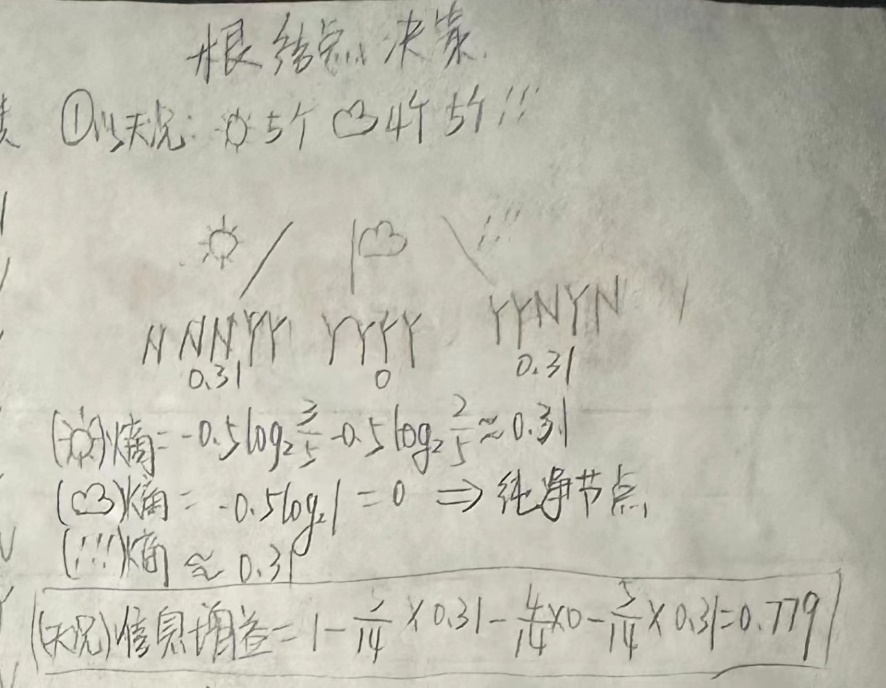 根结点决策
①以天况: 5个 4个 5个
N NNYY YYYY YYNYN
0.31 0 0.31
()熵=-0.5log₂3/5-0.5log₂2/5≈0.31
()熵=-0.5log₂1=0⇒纯净节点
()熵≈0.31
(天况)信息增益=1-5/14×0.31-4/14×0-5/14×0.31=0.779